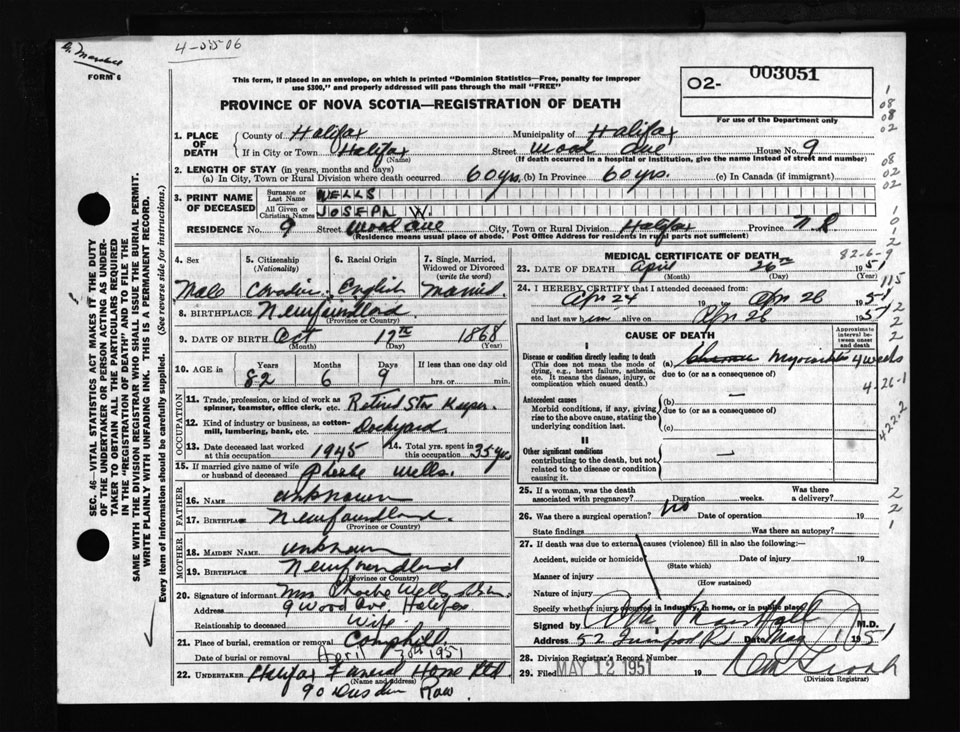 4-0506
FORM 6
This form, if placed in an envelope, on which is printed "Dominion Statistics—Free, penalty for improper
use $300," and properly addressed will pass through the mail "FREE"
PROVINCE OF NOVA SCOTIA—REGISTRATION OF DEATH
02- 003051
For use of the Department only
1. PLACE OF DEATH County of Halifax Municipality of Halifax
If in City or Town Halifax (Name) Street Wood Ave House No. 9
(If death occurred in a hospital or institution, give the name instead of street and number)
2. LENGTH OF STAY (in years, months and days)
(a) In City, Town or Rural Division where death occurred 60 yrs. (b) In Province 60 yrs. (c) In Canada (if immigrant)
3. PRINT NAME OF DECEASED Surname or Last Name WELLS
All Given or Christian Names JOSEPH W.
RESIDENCE No. 9 Street Wood Ave City, Town or Rural Division Halifax Province N.S
(Residence means usual place of abode. Post Office Address for residents in rural parts not sufficient)
4. Sex 5. Citizenship (Nationality) 6. Racial Origin 7. Single, Married, Widowed or Divorced (write the word)
Male English Married
8. BIRTHPLACE Newfoundland
(Province or Country)
9. DATE OF BIRTH Oct 17th 1868
(Month) (Day) (Year)
10. AGE in Years Months Days If less than one day old
82 6 9 hrs. or min.
OCCUPATION
11. Trade, profession, or kind of work as
spinner, teamster, office clerk, etc. Retired Store Keeper.
12. Kind of industry or business, as cotton-
mill, lumbering, bank, etc. Dockyard
13. Date deceased last worked
at this occupation 1945 14. Total yrs. spent in this occupation 35 yrs
15. If married give name of wife
or husband of deceased Phoebe Wells.
FATHER
16. NAME unknown
17. BIRTHPLACE Newfoundland.
(Province or Country)
MOTHER
18. MAIDEN NAME unknown
19. BIRTHPLACE Newfoundland
(Province or Country)
20. Signature of informant Mrs Phoebe Wells
Address 9 Wood Ave, Halifax
Relationship to deceased Wife
21. Place of burial, cremation or removal Camphill
Date of burial or removal April 30th 1951
22. UNDERTAKER Halifax Funeral Home Ltd
(Name and address)
90 Row
MEDICAL CERTIFICATE OF DEATH 82-6-9
23. DATE OF DEATH April 26th 1951
(Month) (Day)
24. I HEREBY CERTIFY that I attended deceased from:
Apr 24 19 Apr 26 1951
and last saw him alive on Apr 26 1951
CAUSE OF DEATH
Approximate interval between onset and death
I
Disease or condition directly leading to death
(This does not mean the mode of
dying, e.g., heart failure, asthenia,
etc. It means the disease, injury, or
complication which caused death.)
(a) Myocarditis 4 weeks
due to (or as a consequence of)
4-26-1
Antecedent causes
Morbid conditions, if any, giving
rise to the above cause, stating the
underlying condition last.
(b) —
due to (or as a consequence of)
(c)
4222
II
Other significant conditions
contributing to the death, but not
related to the disease or condition
causing it.
25. If a woman, was the death
associated with pregnancy? Duration weeks. Was there a delivery?
26. Was there a surgical operation? No Date of operation 19
State findings Was there an autopsy?
27. If death was due to external causes (violence) fill in also the following:
Accident, suicide or homicide (State which) Date of injury 19
Manner of injury (How sustained)
Nature of injury
Specify whether injury occurred in industry, in home, or in public place
Signed by Marshall M.D.
Address 52 Date May 1951
28. Division Registrar's Record Number
29. Filed MAY 12 1951 19
(Division Registrar)
SEC. 46—VITAL STATISTICS ACT MAKES IT THE DUTY
OF THE UNDERTAKER OR PERSON ACTING AS UNDER-
TAKER TO OBTAIN ALL THE PARTICULARS REQUIRED
IN THE "REGISTRATION OF DEATH" AND TO FILE THE
SAME WITH THE DIVISION REGISTRAR WHO SHALL ISSUE THE BURIAL PERMIT.
WRITE PLAINLY WITH UNFADING INK. THIS IS A PERMANENT RECORD.
Every item of information should be carefully supplied. (See reverse side for instructions.)